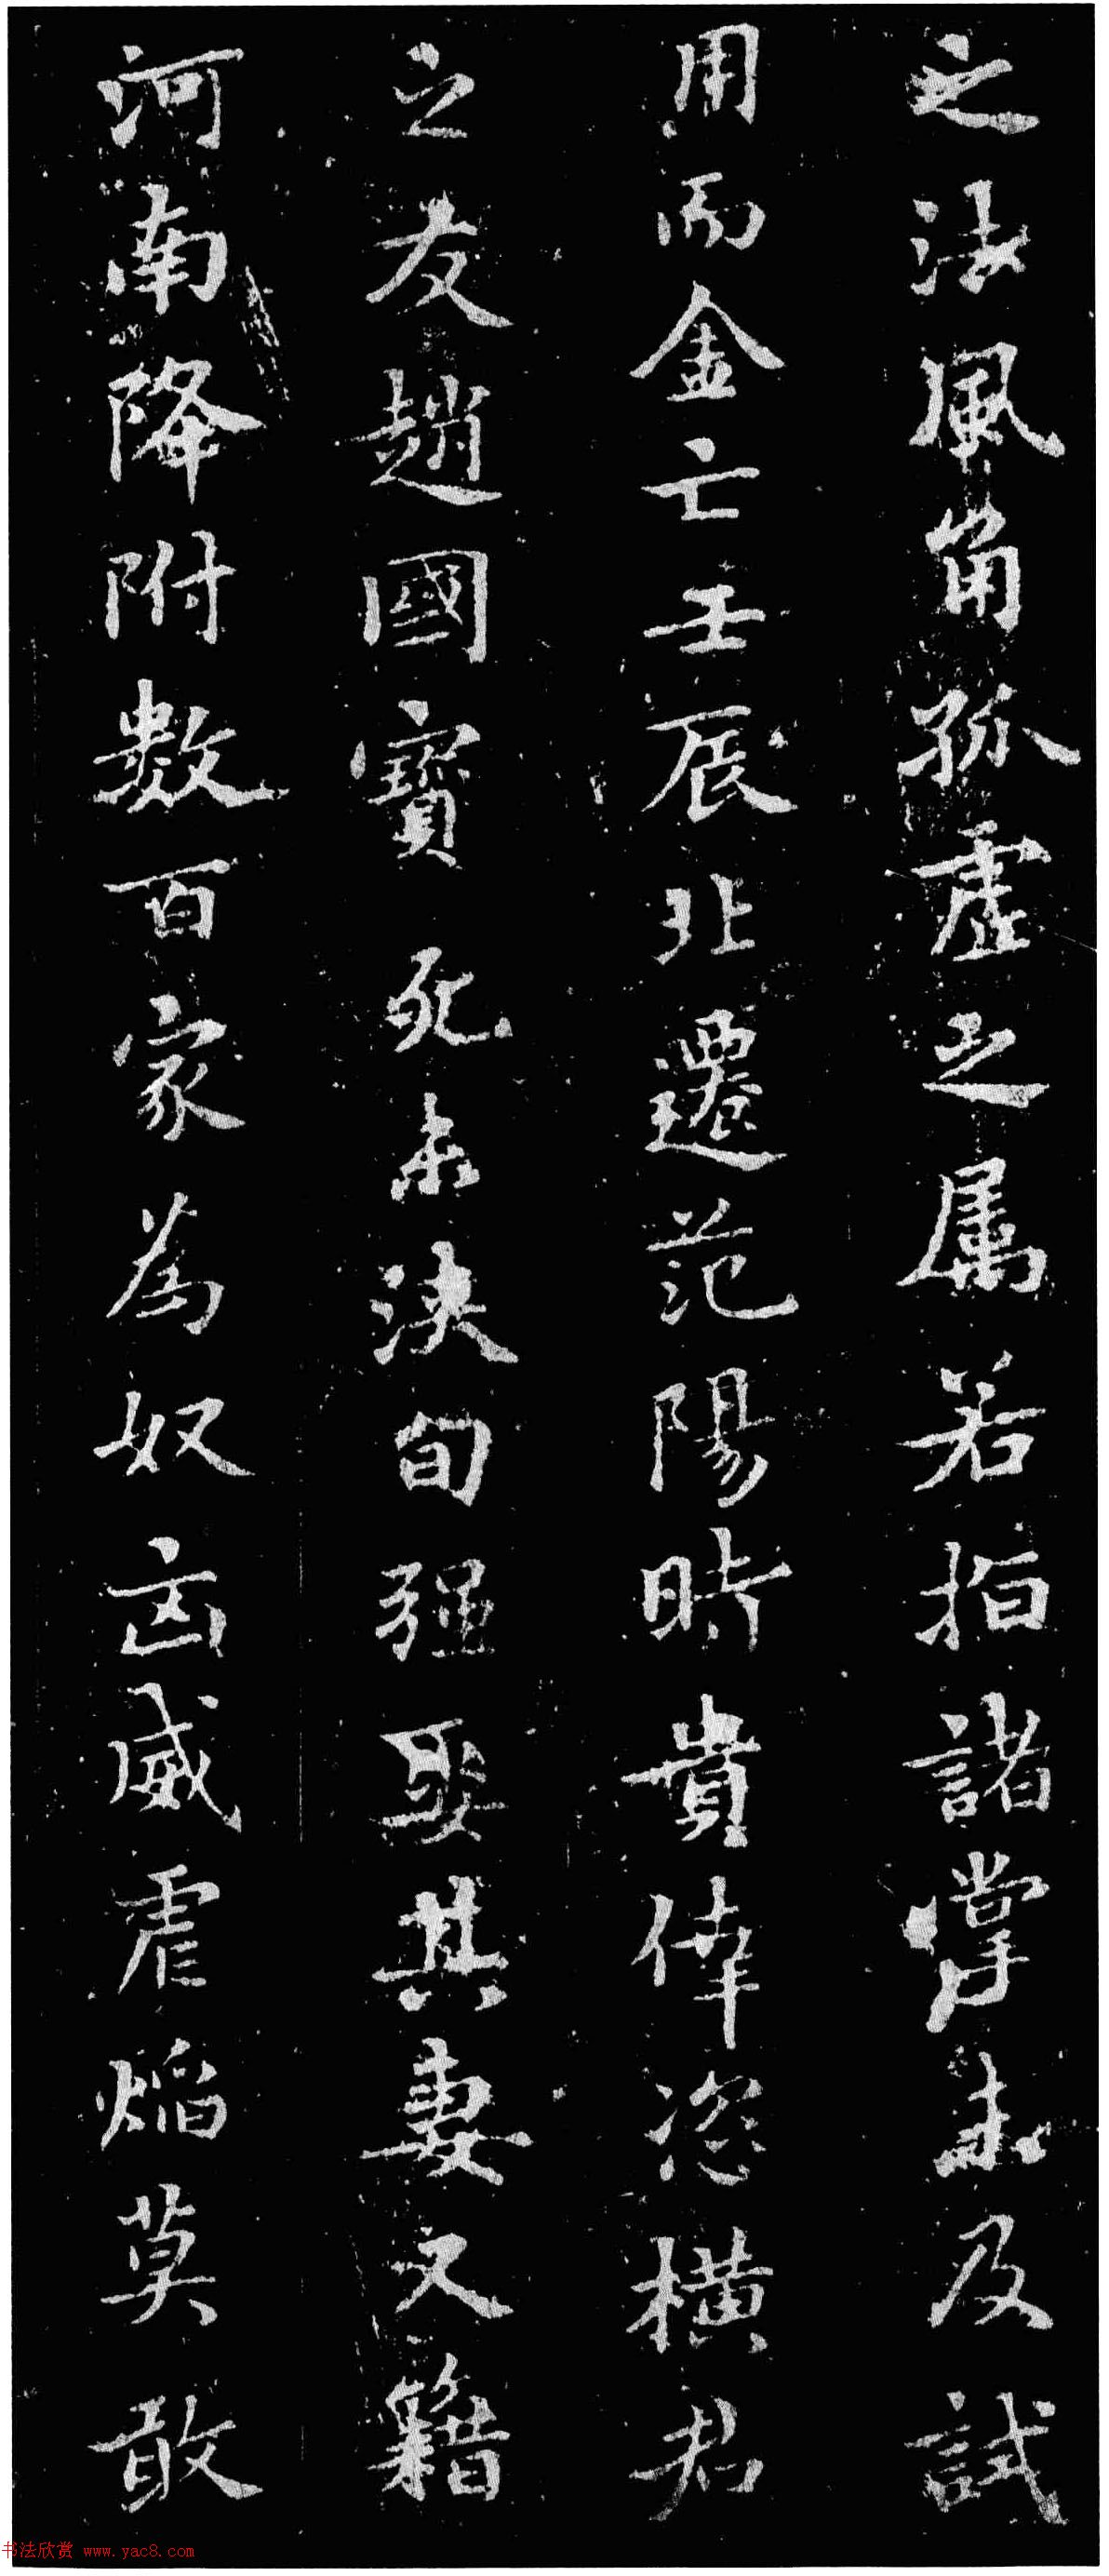 之法風角孤虛之属若指諸掌未及試
用而金亡壬辰北遷范陽時貴倖恣橫君
之友趙國寶死未浹旬强娶其妻又籍
河南降附數百家為奴凶威虐焰莫敢
书法欣赏 www.yac8.com